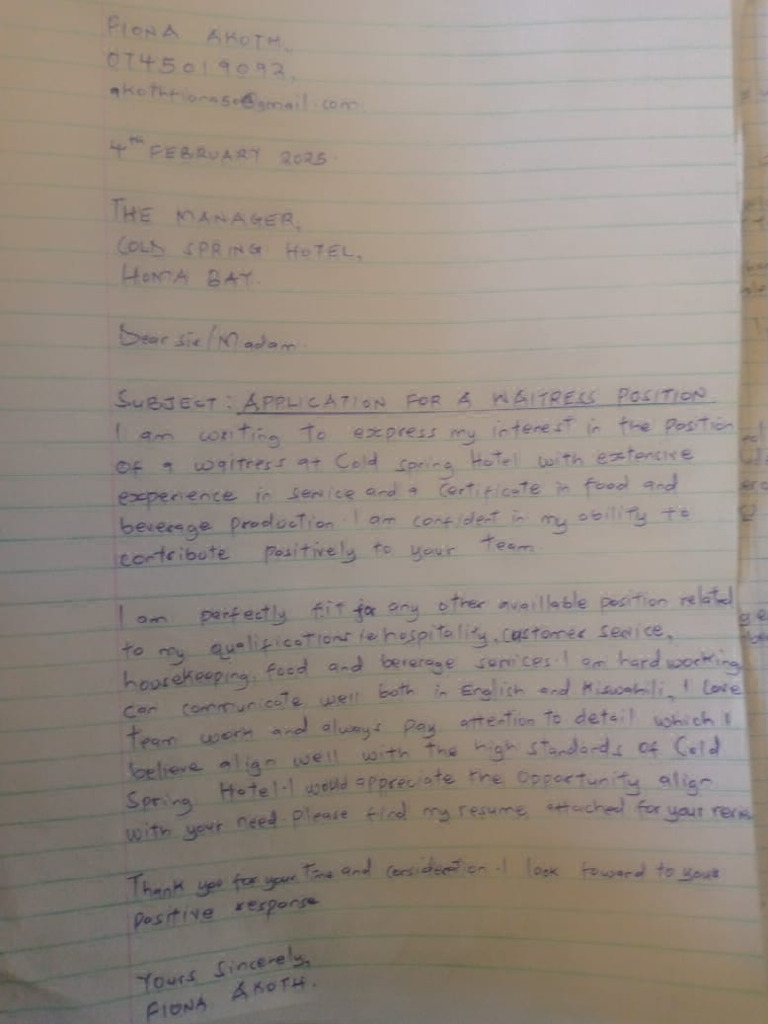 FIONA AKOTH.
0745019093.
akothfiona50@gmail.com
4th FEBRUARY 2025
THE MANAGER,
COLD SPRING HOTEL,
HOMA BAY.
Dear sir/Madam.
SUBJECT: APPLICATION FOR A WAITRESS POSITION
I am writing to express my interest in the position
of a waitress at Cold spring Hotel with extensive
experience in service and a Certificate in food and
beverage production I am confident in my ability to
contribute positively to your team.
I am perfectly fit for any other availlable position related
to my qualifications ie hospitality, customer service,
housekeeping, food and beverage services. I am hard working
can communicate well both in English and Kiswahili, I love
team work and always pay attention to detail which I
believe align well with the high standards of Cold
Spring Hotel. I would appreciate the opportunity align
with your need please find my resume attached for your
Thank you for your Time and consideration. I look foward to your
positive response
Yours sincerely,
FIONA AKOTH.